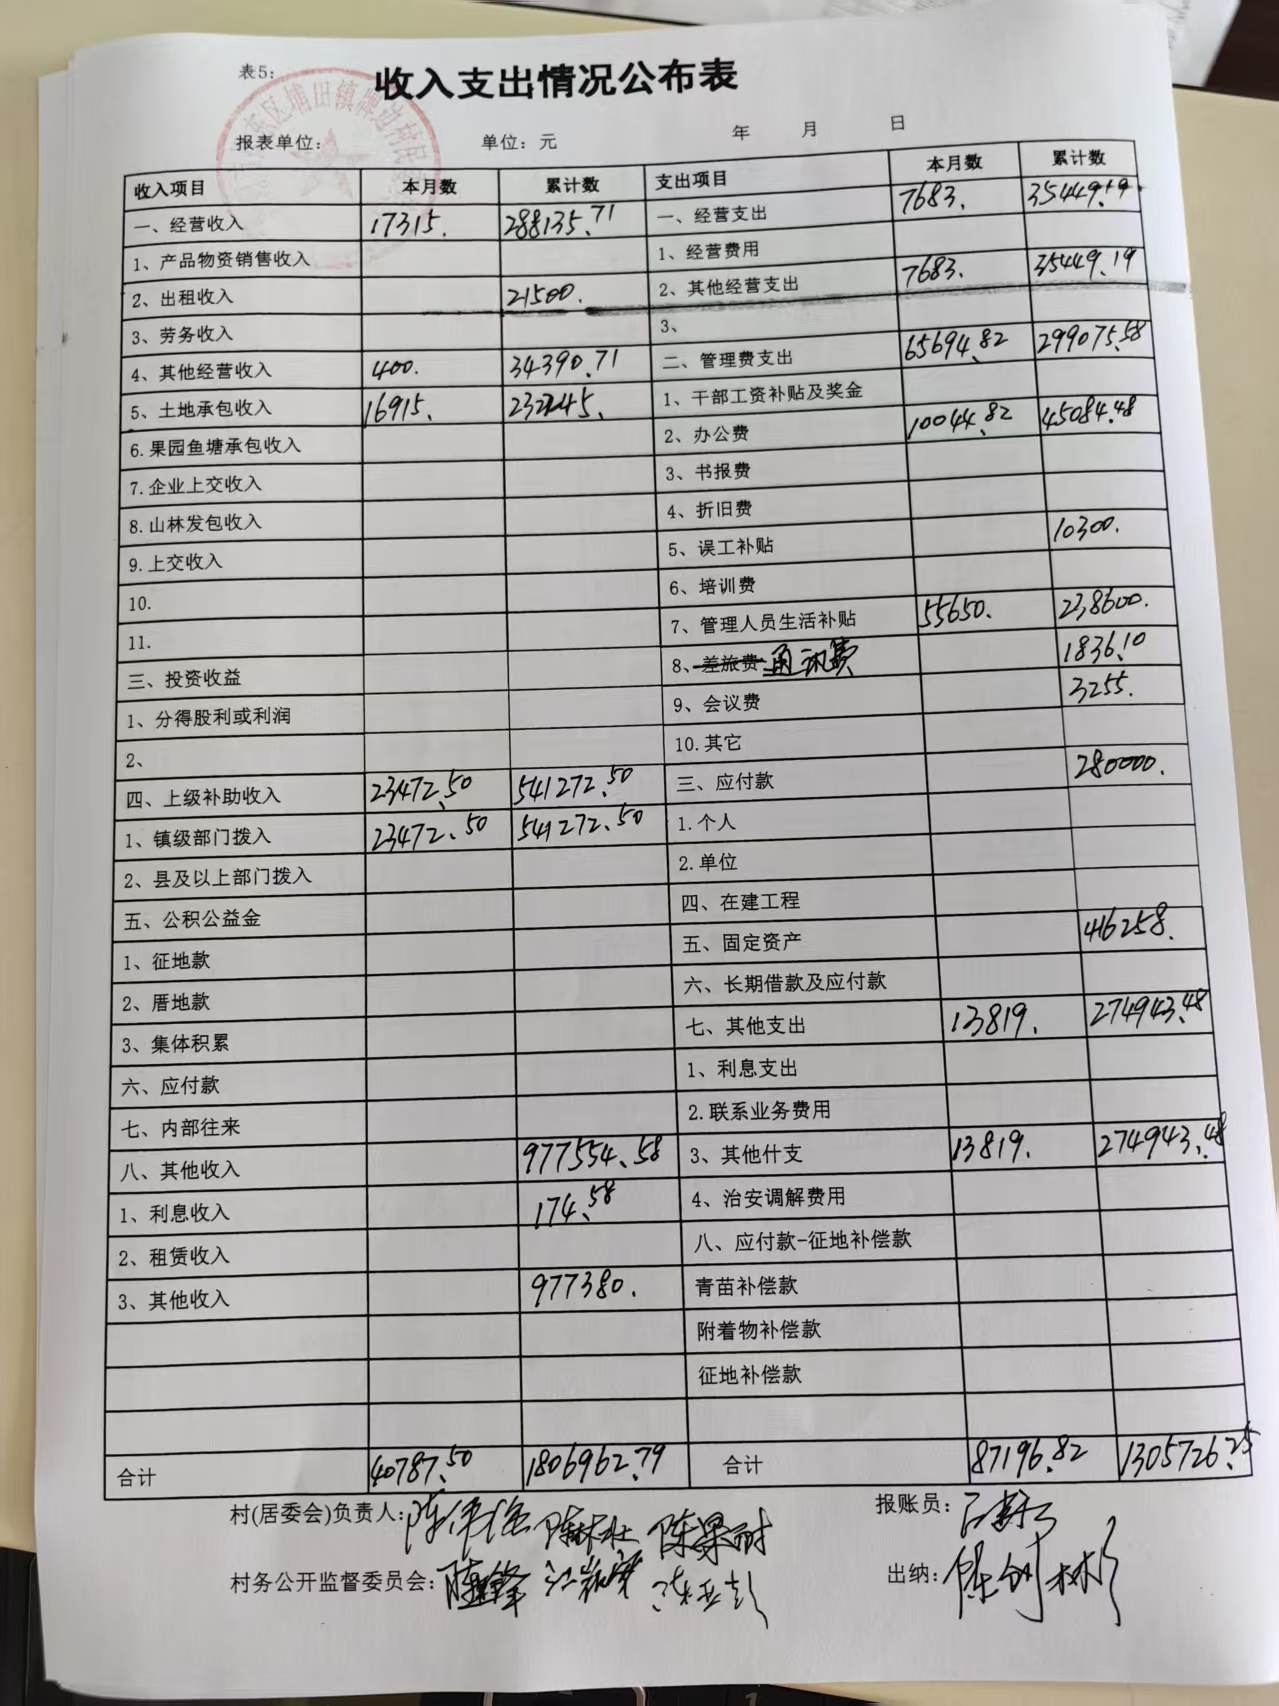 表5:
收入支出情况公布表
报表单位: 单位: 元 年 月 日
收入项目 本月数 累计数 支出项目 本月数 累计数
一、经营收入 17315. 288135.71 一、经营支出 7683. 35449.19
1、产品物资销售收入 1、经营费用
2、出租收入 21500. 2、其他经营支出 7683. 35449.19
3、劳务收入 3、
4、其他经营收入 400. 34390.71 二、管理费支出 65694.82 299075.58
5、土地承包收入 16915. 232245. 1、干部工资补贴及奖金
6.果园鱼塘承包收入 2、办公费 10044.82 45084.48
7.企业上交收入 3、书报费
8.山林发包收入 4、折旧费
9.上交收入 5、误工补贴 10300.
10. 6、培训费
11. 7、管理人员生活补贴 55650. 238600.
三、投资收益 8、差旅费 通讯费 1836.10
1、分得股利或利润 9、会议费 3255.
2、 10.其它
四、上级补助收入 23472.50 541272.50 三、应付款 280000.
1、镇级部门拨入 23472.50 541272.50 1.个人
2、县及以上部门拨入 2.单位
五、公积公益金 四、在建工程
1、征地款 五、固定资产 416258.
2、厝地款 六、长期借款及应付款
3、集体积累 七、其他支出 13819. 274943.48
六、应付款 1、利息支出
七、内部往来 2.联系业务费用
八、其他收入 977554.58 3、其他什支 13819. 274943.48
1、利息收入 174.58 4、治安调解费用
2、租赁收入 八、应付款-征地补偿款
3、其他收入 977380. 青苗补偿款
附着物补偿款
征地补偿款
合计 40787.50 1806962.79 合计 87196.82 1305726.25
村(居委会)负责人: 报账员:
村务公开监督委员会: 出纳: